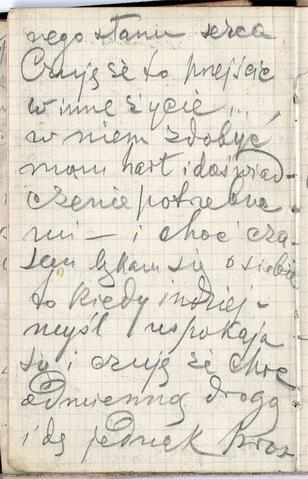 nego stanu serca
Czuję że to przejście
w inne życie...
w niem zdobyć
mam hart i doświad-
czenie potrzebne
mi — i choć cza-
sem lękam się o siebie
to kiedy indziej -
myśl uspokaja
się i czuję że choć
odmienną drogą
idę jednak